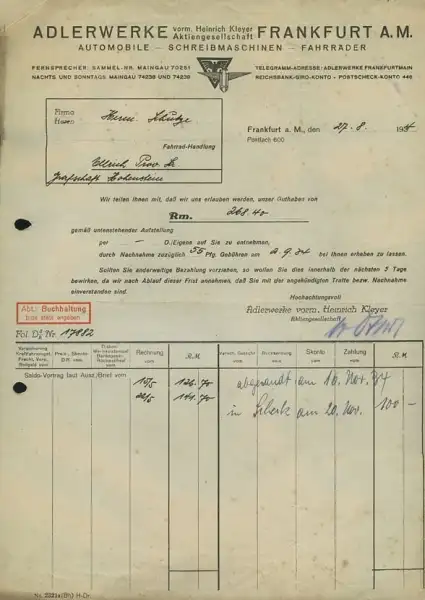 ADLERWERKE vorm. Heinrich Kleyer Aktiengesellschaft FRANKFURT A.M.
AUTOMOBILE – SCHREIBMASCHINEN – FAHRRÄDER
FERNSPRECHER: SAMMEL-NR. MAINGAU 70251
NACHTS UND SONNTAGS MAINGAU 74238 UND 74239
TELEGRAMM-ADRESSE: ADLERWERKE FRANKFURTMAIN
REICHSBANK-GIRO-KONTO – POSTSCHECK-KONTO 446
Firma
Herrn Herm. Schütze
Fahrrad-Handlung
Ellrich Prov. Sa
Grafschaft Hohenstein
Frankfurt a. M., den 27.8. 1934
Postfach 600
Wir teilen Ihnen mit, daß wir uns erlauben werden, unser Guthaben von
Rm. 268.40
gemäß untenstehender Aufstellung
per — D./Eigene auf Sie zu entnehmen,
durch Nachnahme zuzüglich 55 Pfg. Gebühren am 2.9.34 bei Ihnen erheben zu lassen.
Sollten Sie anderweitige Bezahlung vorziehen, so wollen Sie dies innerhalb der nächsten 3 Tage
bewirken, da wir nach Ablauf dieser Frist annehmen, daß Sie mit der angekündigten Tratte bezw. Nachnahme
einverstanden sind.
Hochachtungsvoll
Adlerwerke vorm. Heinrich Kleyer
Aktiengesellschaft
Abt.: Buchhaltung
bitte stets angeben
Fol. D² Nr. 17882
Rechnung
vom
R.M.
Skonto
vom
Zahlung
vom
R.M.
Saldo-Vortrag laut Ausz./Brief vom
19/5 126.70
22/5 141.70
abgesandt am 18. Nov. 34
in Scheck am 20. Nov. 100 –
Nr. 2321a (Bh) H-Dr.